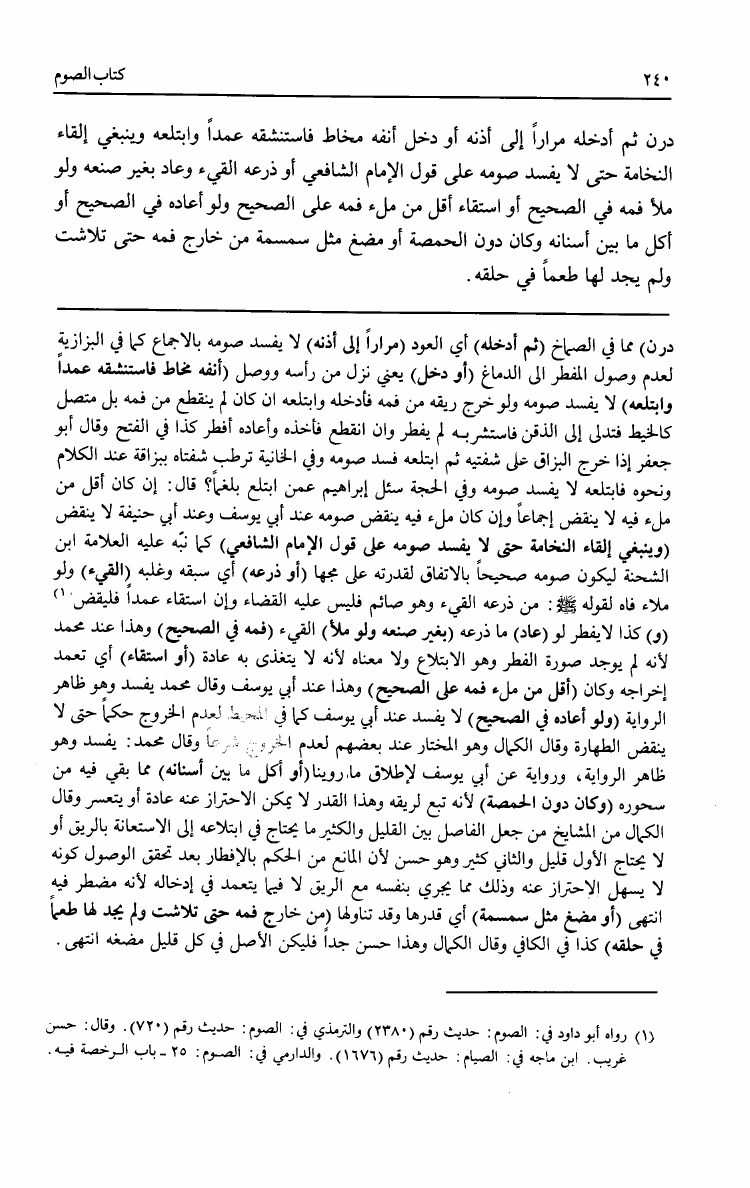 ٢٤٠
كتاب الصوم
درن ثم أدخله مراراً إلى أذنه أو دخل أنفه مخاط فاستنشقه عمداً وابتلعه وينبغي إلقاء
النخامة حتى لا يفسد صومه على قول الإمام الشافعي أو ذرعه القيء وعاد بغير صنعه ولو
ملأ فمه في الصحيح أو استقاء أقل من ملء فمه على الصحيح ولو أعاده في الصحيح أو
أكل ما بين أسنانه وكان دون الحمصة أو مضغ مثل سمسمة من خارج فمه حتى تلاشت
ولم يجد لها طعماً في حلقه.
درن) مما في الصماخ (ثم أدخله) أي العود (مراراً إلى أذنه) لا يفسد صومه بالاجماع كما في البزازية
لعدم وصول المفطر الى الدماغ (أو دخل) يعني نزل من رأسه ووصل (أنفه مخاط فاستنشقه عمداً
وابتلعه) لا يفسد صومه ولو خرج ريقه من فمه فأدخله وابتلعه ان كان لم ينقطع من فمه بل متصل
كالخيط فتدلى إلى الذقن فاستشربه لم يفطر وان انقطع فأخذه وأعاده أفطر كذا في الفتح وقال أبو
جعفر إذا خرج البزاق على شفتيه ثم ابتلعه فسد صومه وفي الخانية ترطب شفتاه ببزاقة عند الكلام
ونحوه فابتلعه لا يفسد صومه وفي الحجة سئل إبراهيم عمن ابتلع بلغماً؟ قال: إن كان أقل من
ملء فيه لا ينقض إجماعاً وإن كان ملء فيه ينقض صومه عند أبي يوسف وعند أبي حنيفة لا ينقض
(وينبغي إلقاء النخامة حتى لا يفسد صومه على قول الإمام الشافعي) كما نبّه عليه العلامة ابن
الشحنة ليكون صومه صحيحاً بالاتفاق لقدرته على مجها (أو ذرعه) أي سبقه وغلبه (القيء) ولو
ملاء فاه لقوله ﷺ: من ذرعه القيء وهو صائم فليس عليه القضاء وإن استقاء عمداً فليقض (١)
(و) كذا لايفطر لو (عاد) ما ذرعه (بغير صنعه ولو ملأ) القيء (فمه في الصحيح) وهذا عند محمد
لأنه لم يوجد صورة الفطر وهو الابتلاع ولا معناه لأنه لا يتغذى به عادة (أو استقاء) أي تعمد
إخراجه وكان (أقل من ملء فمه على الصحيح) وهذا عند أبي يوسف وقال محمد يفسد وهو ظاهر
الرواية (ولو أعاده في الصحيح) لا يفسد عند أبي يوسف كما في المحيط لعدم الخروج حكماً حتى لا
ينقض الطهارة وقال الكمال وهو المختار عند بعضهم لعدم الخروج شرعاً وقال محمد: يفسد وهو
ظاهر الرواية، ورواية عن أبي يوسف لإطلاق ما روينا (أو أكل ما بين أسنانه) مما بقي فيه من
سحوره (وكان دون الحمصة) لأنه تبع لريقه وهذا القدر لا يمكن الاحتراز عنه عادة أو يتعسر وقال
الكمال من المشايخ من جعل الفاصل بين القليل والكثير ما يحتاج في ابتلاعه إلى الاستعانة بالريق أو
لا يحتاج الأول قليل والثاني كثير وهو حسن لأن المانع من الحكم بالإفطار بعد تحقق الوصول كونه
لا يسهل الاحتراز عنه وذلك مما يجري بنفسه مع الريق لا فيما يتعمد في إدخاله لأنه مضطر فيه
انتهى (أو مضغ مثل سمسمة) أي قدرها وقد تناولها (من خارج فمه حتى تلاشت ولم يجد لها طعماً
في حلقه) كذا في الكافي وقال الكمال وهذا حسن جداً فليكن الأصل في كل قليل مضغه انتهى.
(١) رواه أبو داود في: الصوم: حديث رقم (٢٣٨٠) والترمذي في: الصوم: حديث رقم (٧٢٠). وقال: حسن
غريب. ابن ماجه في: الصيام: حديث رقم (١٦٧٦). والدارمي في: الصوم: ٢٥ ـ باب الرخصة فيه.